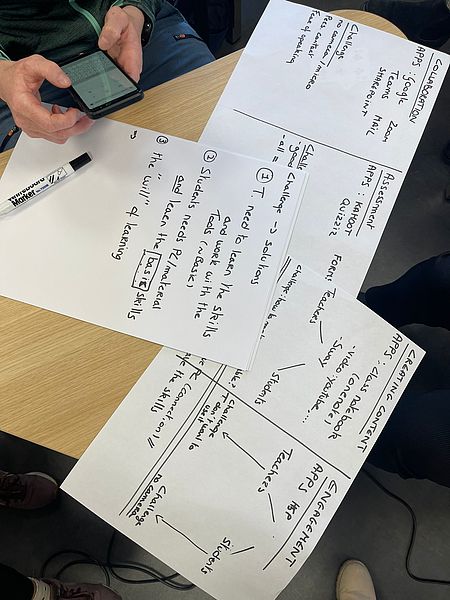 COLLABORATION
APPS: Google Zoom
Teams MAIL
SHAREPOINT
Challenge
no camera / micro
Res. contact
Fear of speaking
Assessment
APPS: KAHOOT
QUIZZIZ
Forms
Challe
- good
- all =
Challenge → solutions
① T. need to learn the skills
and work with the
Tools (~Basic)
② Students needs PC/material
and learn the basic skills
③ the "will" of learning
⇒
CREATING CONTENT
APPS: class notebook
(onenote)
- video-youtube...
- Sway
Teachers
Students
challenge
ENGAGEMENT
APPS
Teachers
Challenge
T don't want to
use it
Students
Challenge
no camera
PC (connection) //
the skills
Marker